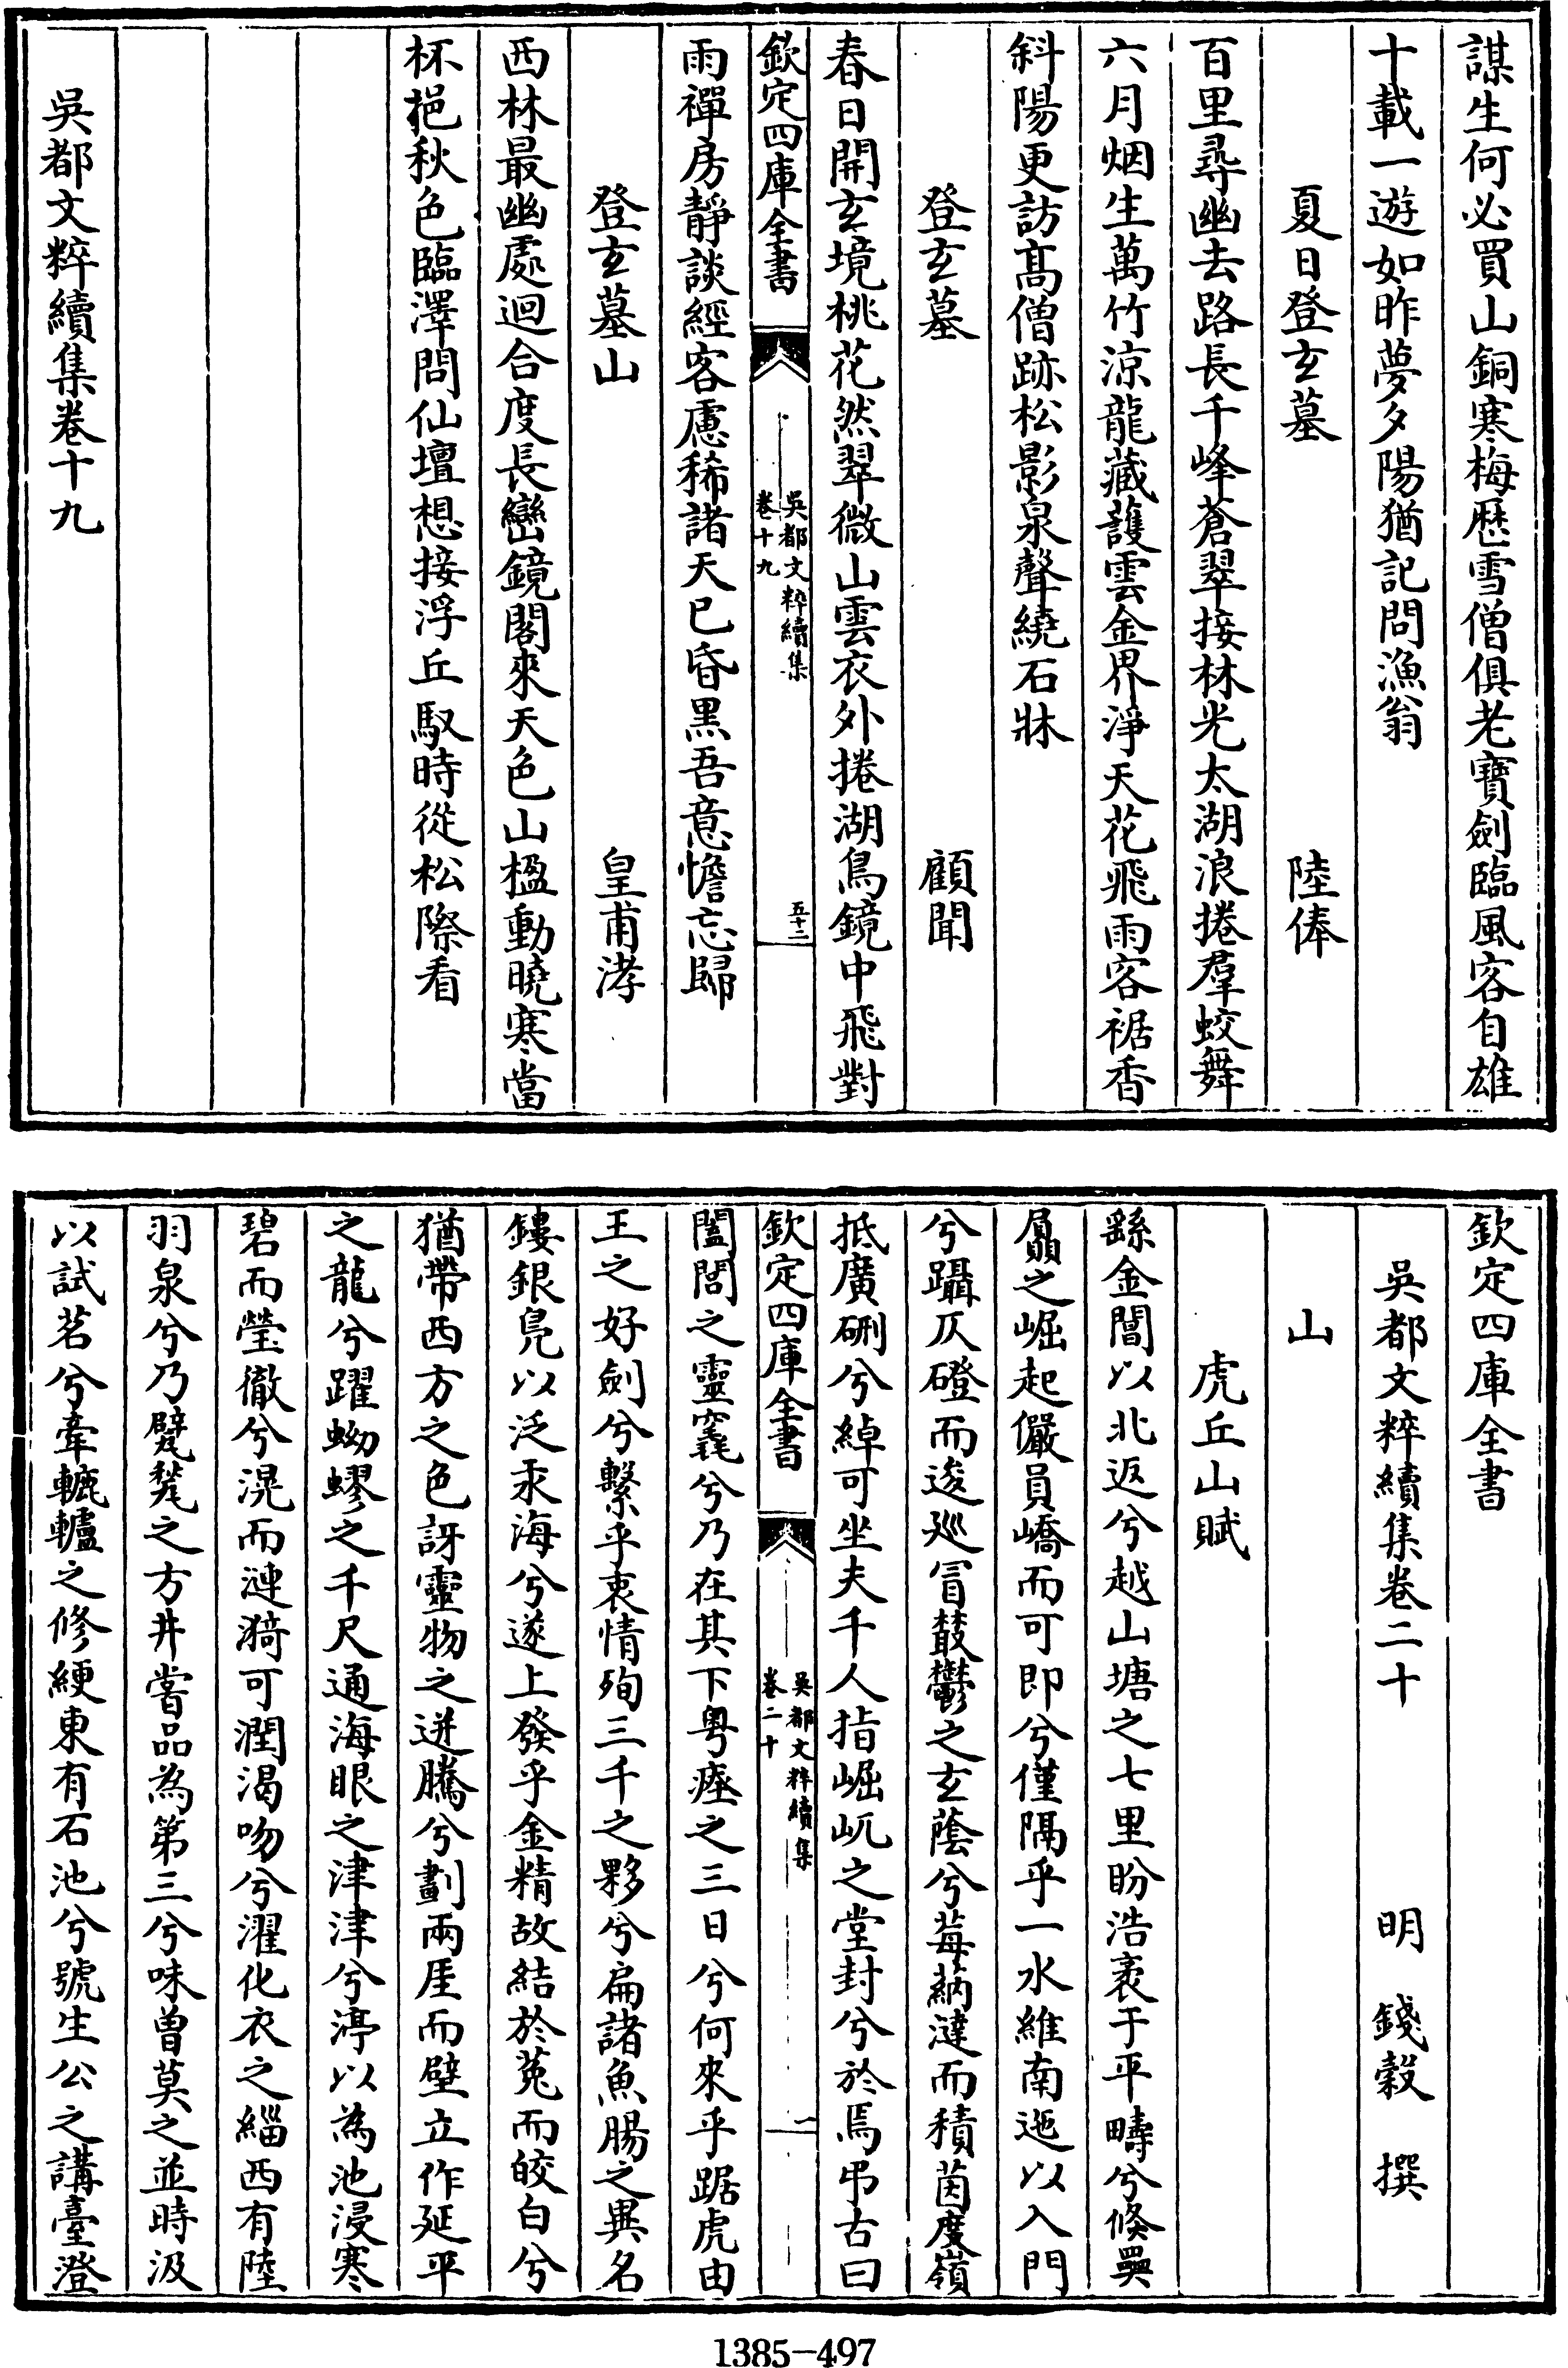 謀生何必買山銅寒梅歷雪僧俱老寶劍臨風客自雄
十載一遊如昨夢夕陽猶記問漁翁
夏日登玄墓 陸俸
百里尋幽去路長千峰蒼翠接林光太湖浪捲羣蛟舞
六月烟生萬竹涼龍藏護雲金界淨天花飛雨客裾香
斜陽更訪髙僧跡松影泉聲繞石牀
登玄墓 顧聞
春日開玄境桃花然翠微山雲衣外捲湖鳥鏡中飛對
欽定四庫全書 吳都文粹續集 卷十九 五十二
雨禪房靜談經客慮稀諸天已昏黑吾意憺忘歸
登玄墓山 皇甫涍
西林最幽處迴合度長巒鏡閣來天色山楹動曉寒當
杯挹秋色臨澤問仙壇想接浮丘馭時從松際看
吳都文粹續集卷十九
欽定四庫全書
吳都文粹續集卷二十
明 錢穀 撰
山
虎丘山賦
繇金閶以北返兮越山塘之七里盼浩袤于平疇兮倏㠑
屭之崛起儼員嶠而可即兮僅隔乎一水維南迤以入門
兮躡仄磴而逡廵冒藂鬱之玄蔭兮莓蒳澾而積茵度嶺
抵廣硎兮綽可坐夫千人指崛屼之堂封兮於焉弔古曰
欽定四庫全書 吳都文粹續集 卷二十 一
闔閭之靈窀兮乃在其下粤瘞之三日兮何來乎踞虎由
王之好劍兮繫乎衷情殉三千之夥兮扁諸魚腸之異名
鏤銀凫以泛汞海兮遂上發乎金精故結於菟而皎白兮
猶帶西方之色訝靈物之迸騰兮劃兩厓而壁立作延平
之龍兮躍蚴蟉之千尺通海眼之津津兮渟以為池浸寒
碧而瑩徹兮滉而漣漪可潤渴吻兮濯化衣之緇西有陸
羽泉兮乃甓甃之方井嘗品為第三兮味曽莫之並時汲
以試茗兮牽轆轤之修綆東有石池兮號生公之講臺澄
1385-497